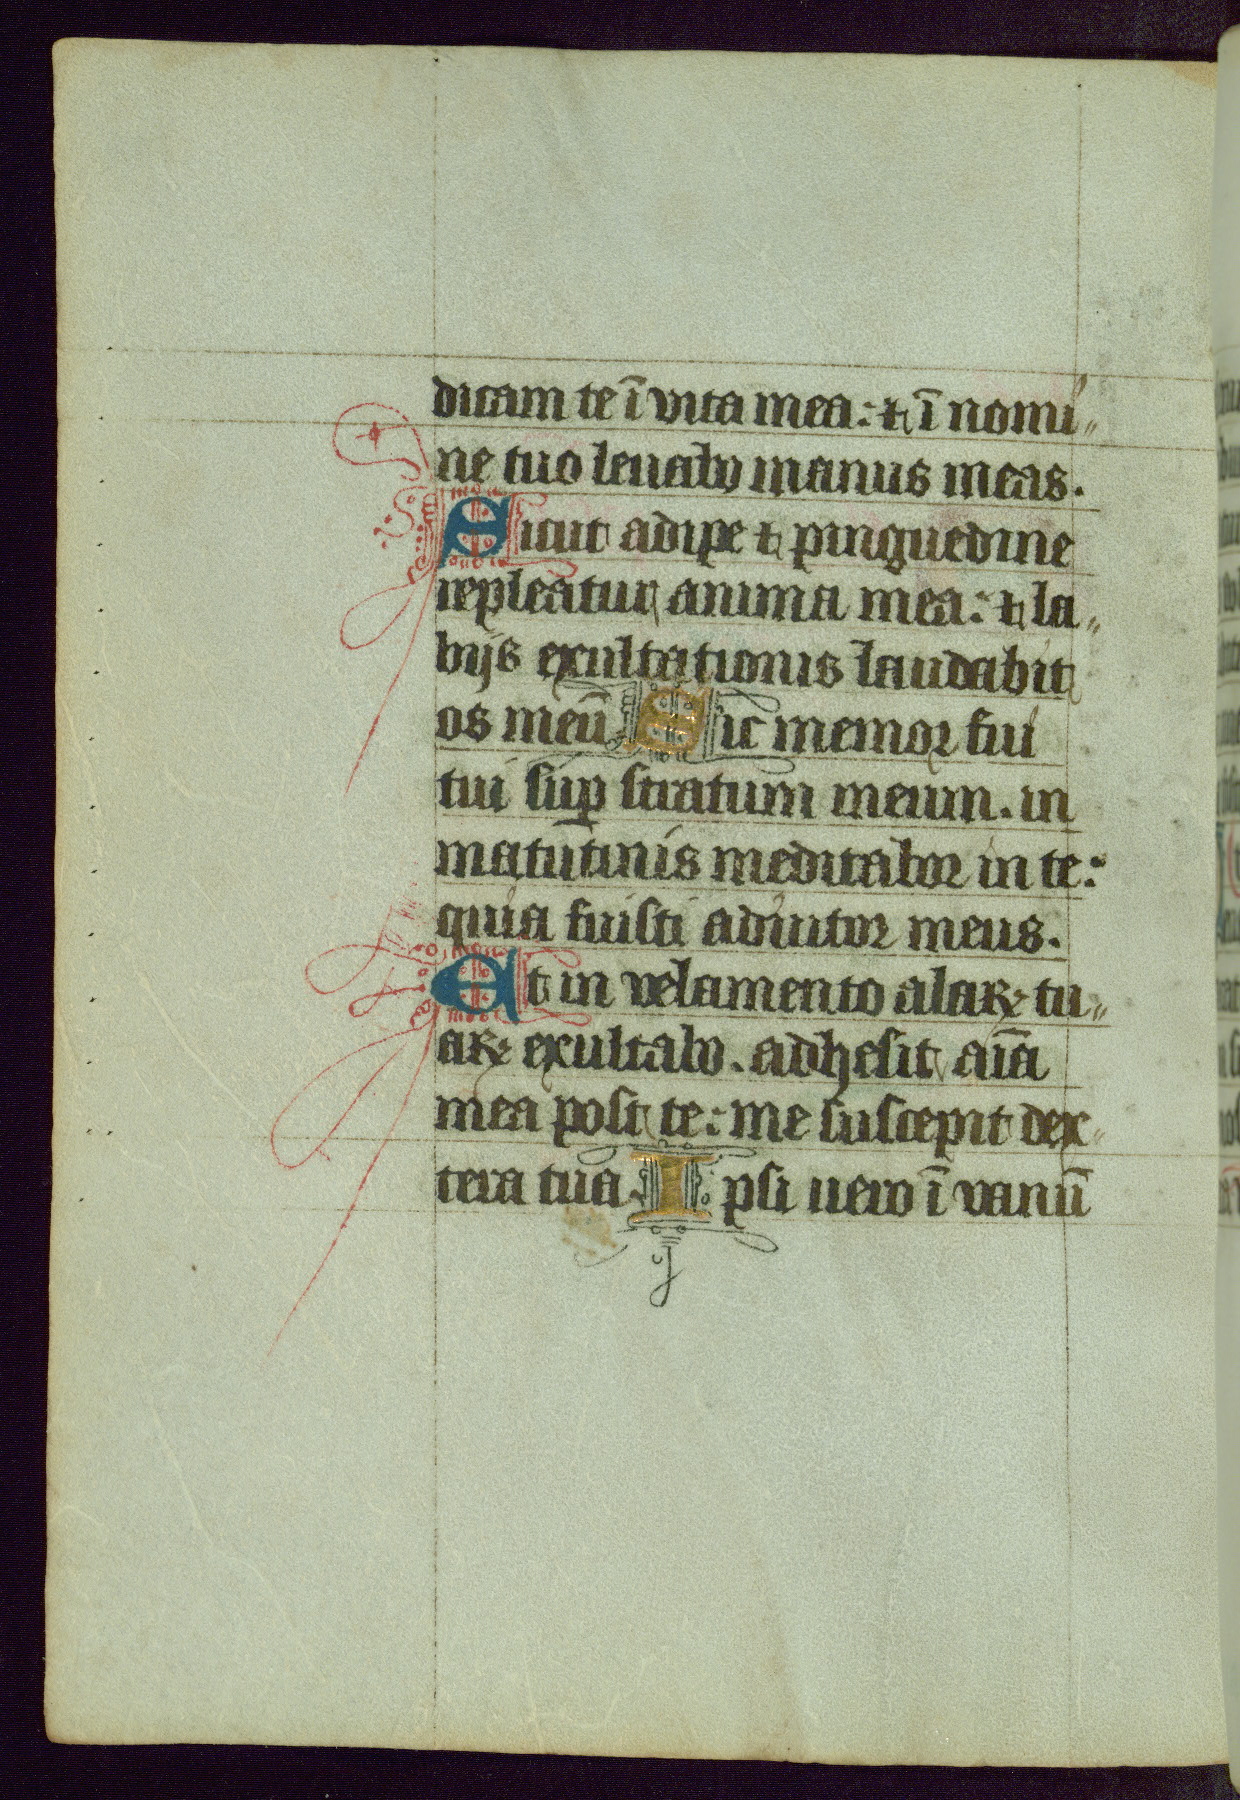 dicam te ī vita mea: ⁊ ī nomi〃
ne tuo leuabo manus meas.
Sicut adipe ⁊ pinguedine
repleatur anima mea: ⁊ la〃
bijs exultationis laudabit
os meū Sic memor fui
tui suꝑ stratum meum. in
matutinis meditabor in te:
quia fuisti adiutor meus.
Et in velamento alaꝝ tu〃
aꝝ exultabo. adhesit aīa
mea post te: me suscepit dex〃
tera tua. Ipsi uero ī vanū